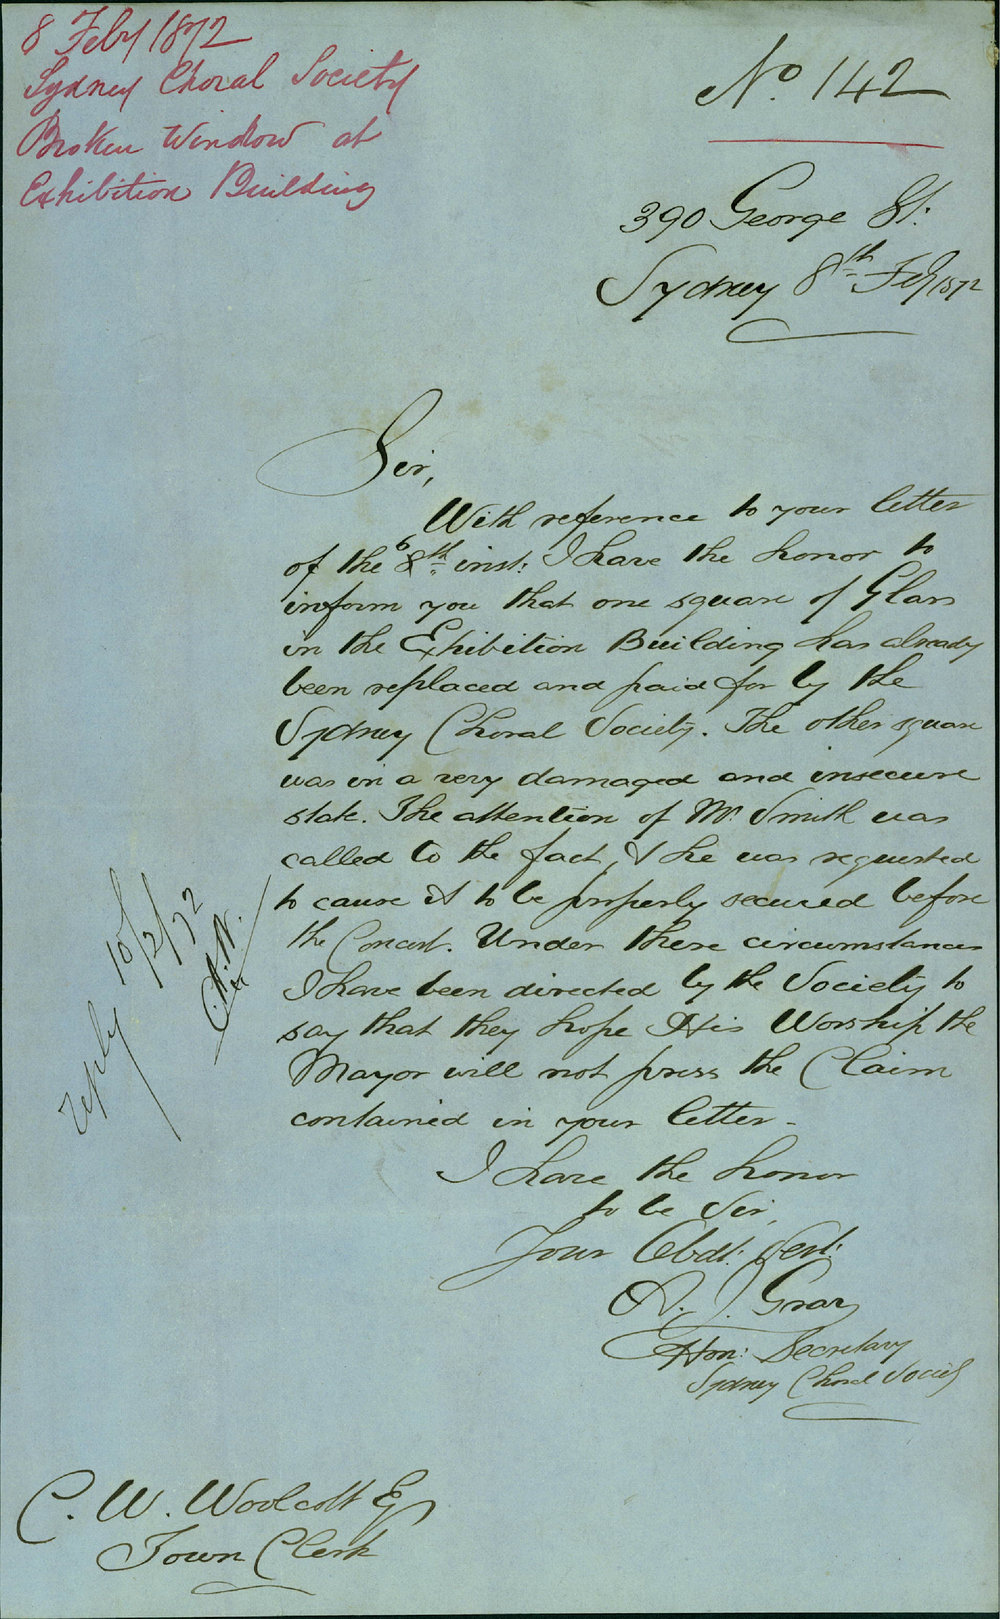 8 Feby 1872
Sydney Choral Society
Broken Window at
Exhibition Building
No. 142
390 George St:
Sydney 8th Feby 1872
Sir,
With reference to your letter
of the 6th inst: I have the honor to
inform you that one square of Glass
in the Exhibition Building has already
been replaced and paid for by the
Sydney Choral Society. The other square
was in a very damaged and insecure
state. The attention of Mr. Smith was
called to the fact, & he was requested
to cause it to be properly secured before
the Concert. Under these circumstances
I have been directed by the Society to
say that they hope His Worship the
Mayor will not press the Claim
contained in your letter.
reply 10/2/72
I have the honor
to be Sir,
Your Obdt: Servt:
A. J. Gray
Hon: Secretary
Sydney Choral Society
C. W. Woolcott Esq
Town Clerk